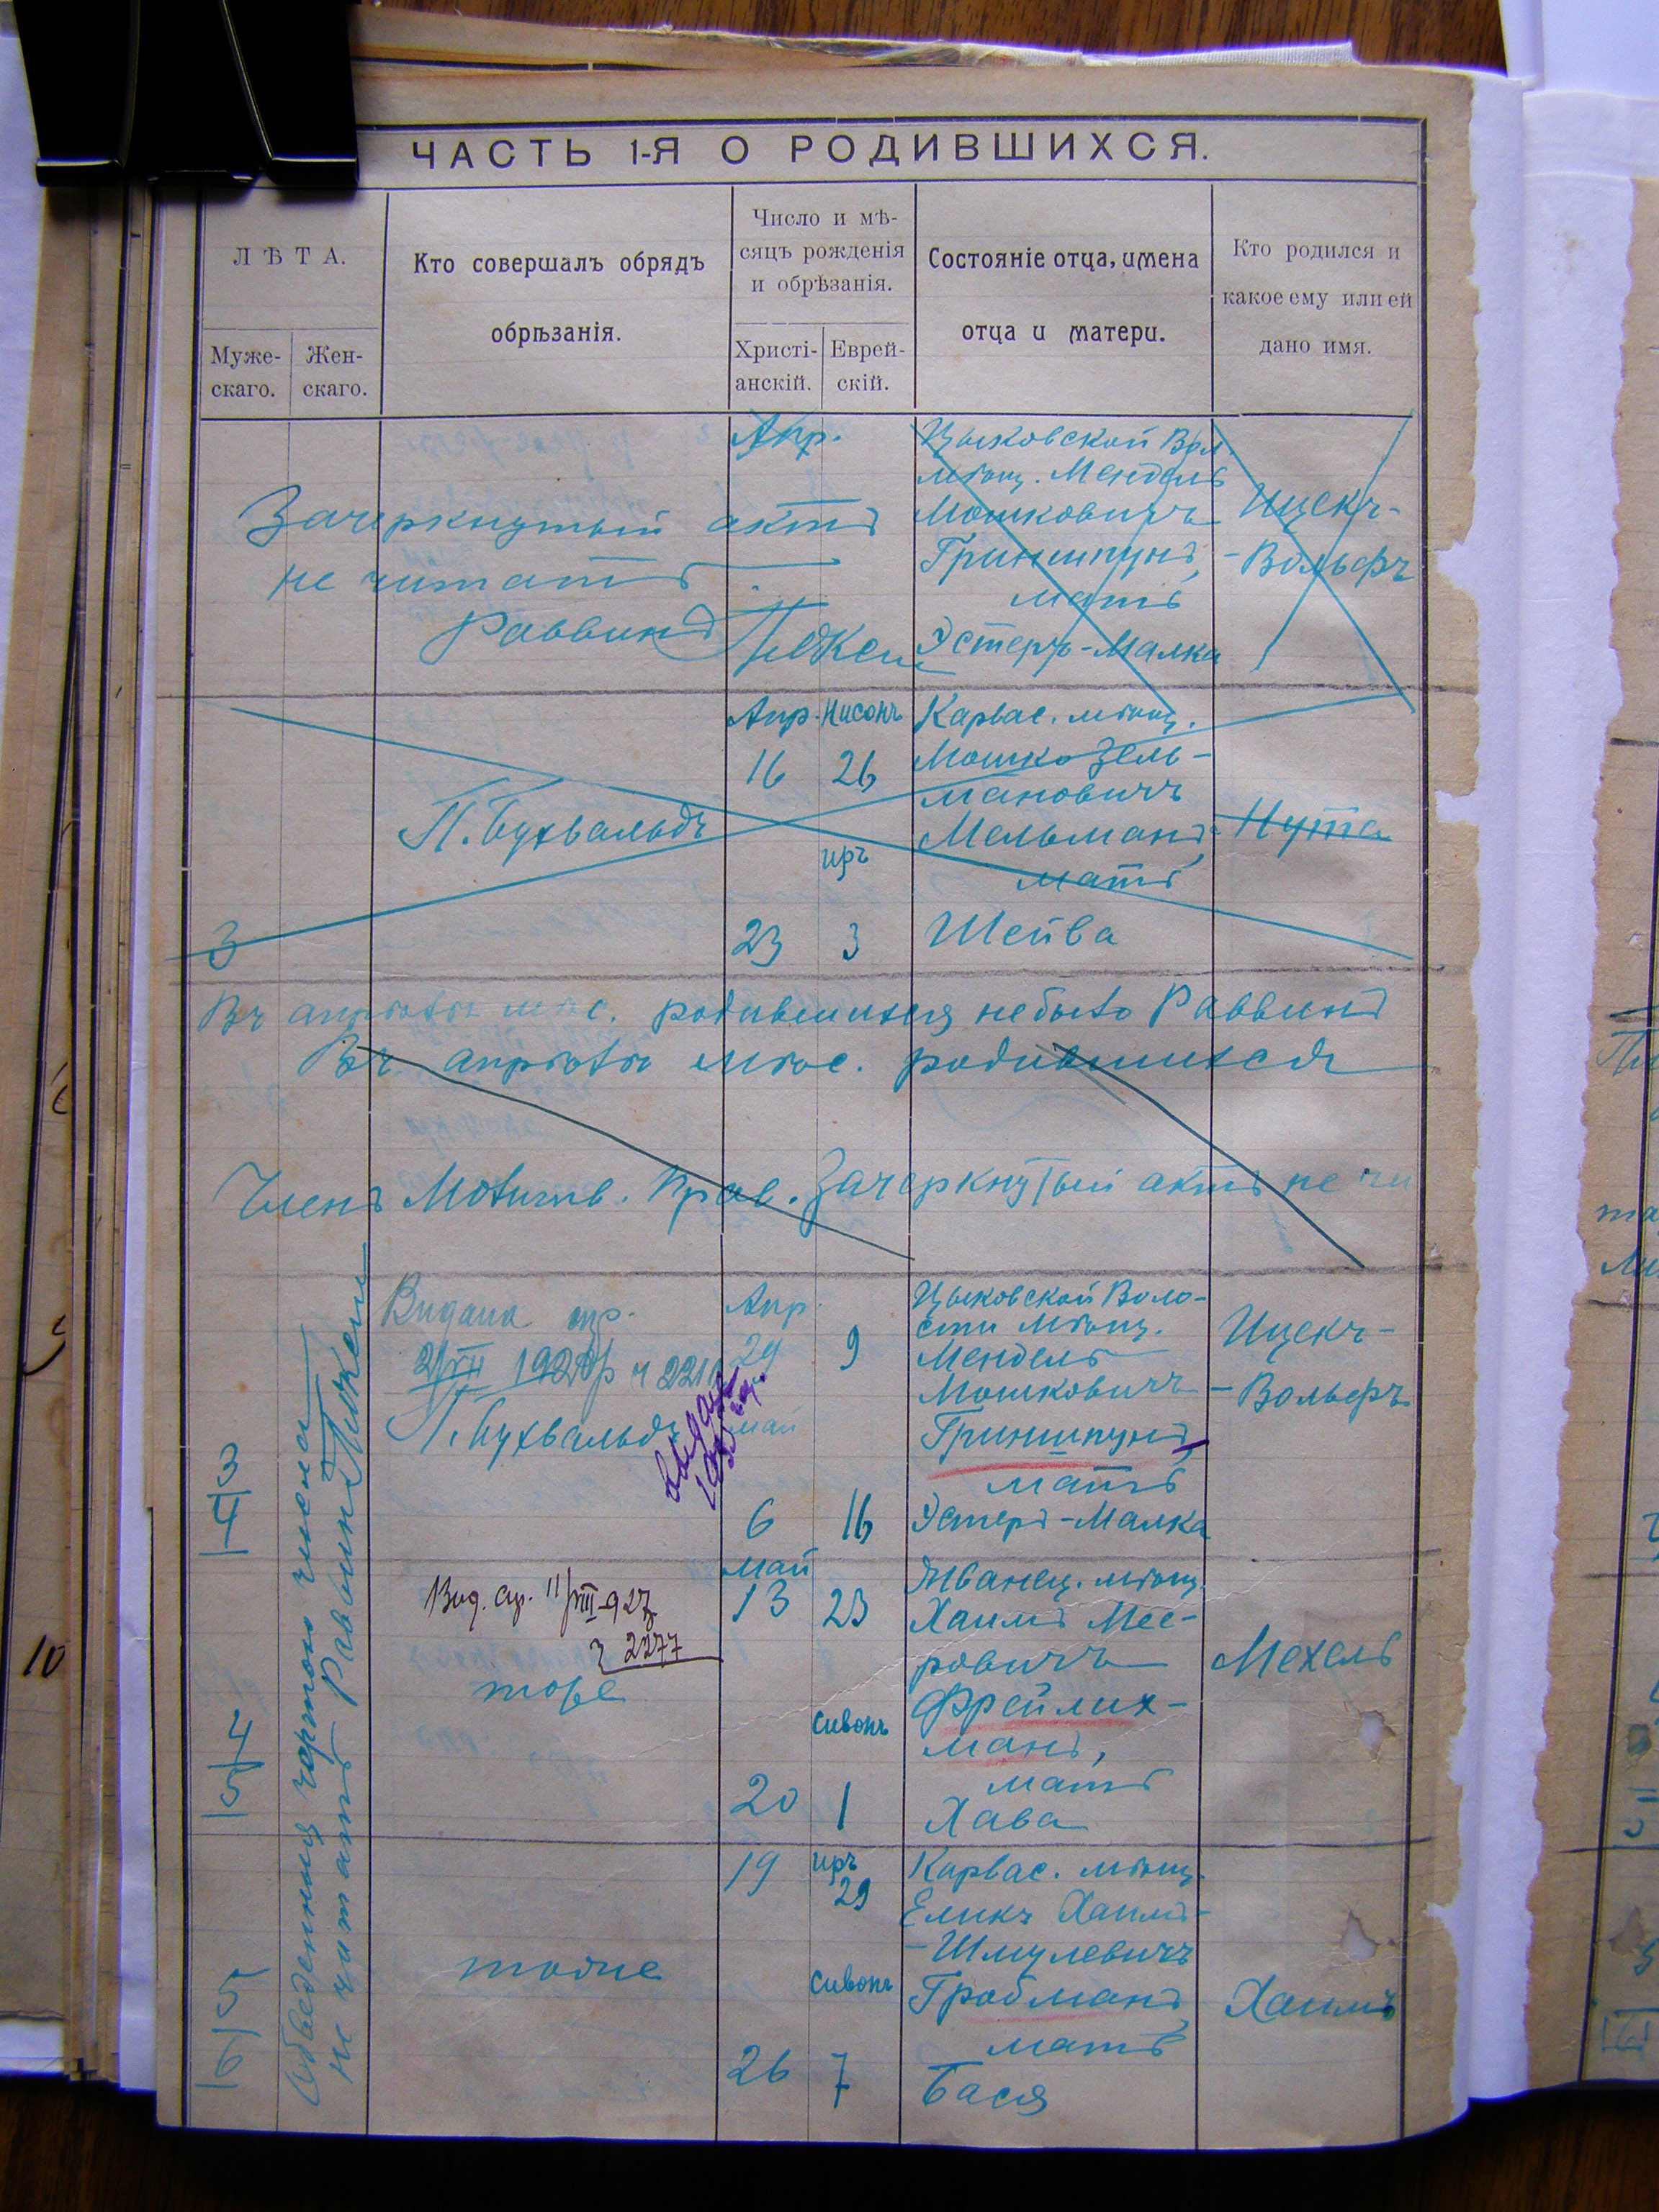 ЧАСТЬ 1-Я О РОДИВШИХСЯ.
ЛѢТА.
Муже-
скаго.
Жен-
скаго.
Кто совершалъ обрядъ
обрѣзанія.
Число и мѣ-
сяцъ рожденія
и обрѣзанія.
Христі-
анскій.
Еврей-
скій.
Состояніе отца, имена
отца и матери.
Кто родился и
какое ему или ей
дано имя.
Апр.
Зачеркнутый актъ
не читать
Раввинъ
Цыковской Вол.
мѣщ. Мендель
Мошковичъ
Гриншпунъ,
мать
Эстеръ-Малка
Ицекъ-
-Вольфъ
3
П. Бухвальдъ
Апр. Нисонъ
16 26
иръ
23 3
Карвас. мѣщ.
Мошко Зель-
мановичъ
Мельманъ,
мать
Шейва
Нута
Въ апрѣлѣ мѣс. родившихся не было Раввинъ
Въ апрѣлѣ мѣс. родившихся
Членъ Молитв. Прав. Зачеркнутый актъ не чи
Обведенныя чертою числа
не читать Раввинъ
3
4
2/VII 192
П. Бухвальдъ
Апр.
29 9
май
6 16
Цыковской Воло-
сти мѣщ.
Мендель
Мошковичъ
Гриншпунъ,
мать
Эстеръ-Малка
Ицекъ-
-Вольфъ
4
5
Вид. 11/VIII-927
2277
тоже
май
13 23
сивонъ
20 1
Жванец. мѣщ.
Хаимъ Мее-
ровичъ
Фрейлих-
манъ,
мать
Хава
Мехель
5
6
тоже
19 иръ
29
сивонъ
26 7
Карвас. мѣщ.
Еликъ Хаимъ-
-Шмулевичъ
Гробманъ,
мать
Бася
Хаимъ
10